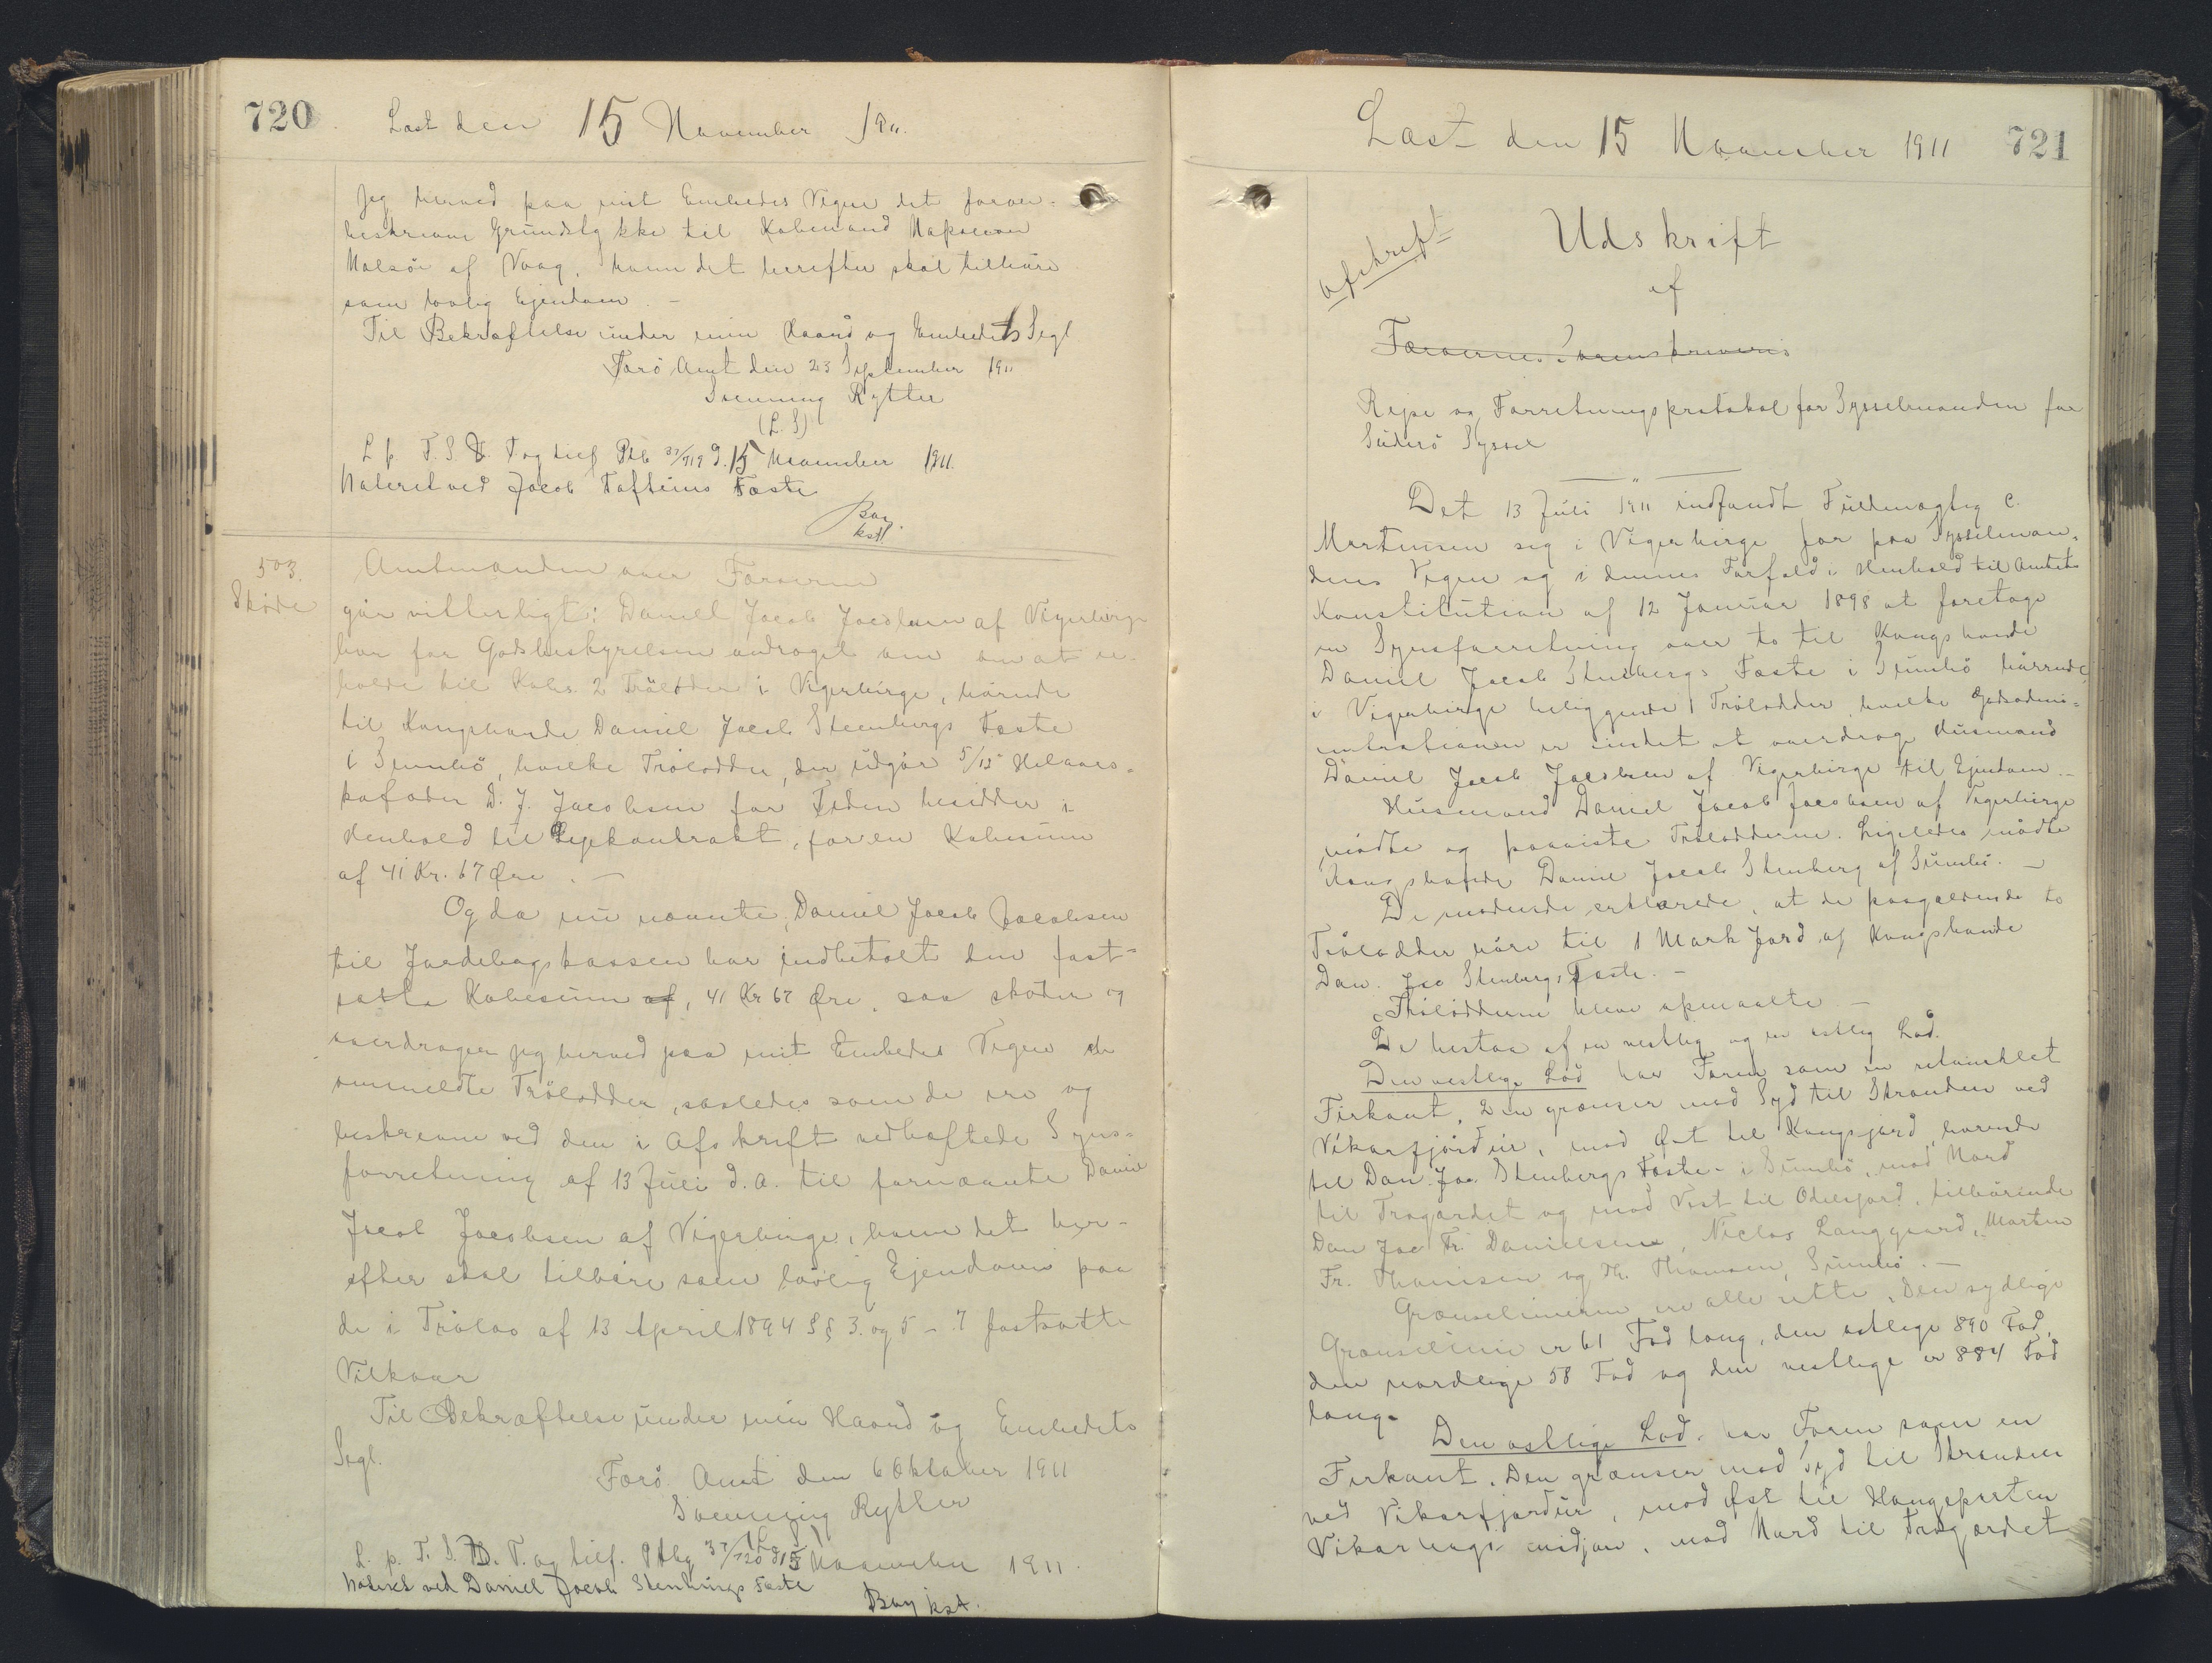 720
Læst den 15 November 1911.
Jeg herved paa mit Embedes Vegne det foran-
beskrevne Grundstykke til Købmand Napoleon
Nolsøe af Vaag, ham det herefter skal tilhøre
som lovlig Ejendom. -
Til Bekræftelse under min Haand og Embedets Segl
Færø Amt den 23 September 1911
Svenning Rytter
(L. S)
L. p. F. S. T. T og tilf Ptk 37/719 d. 15 November 1911.
Noteret ved Jacob Tofteins Fæste
Bay
kst.
503.
Skøde
Amtmanden over Færøerne
gør vitterligt: Daniel Jacob Jacobsen af Vigerbirge
har for Godsbestyrelsen andraget om om at er-
holde til Købs 2 Trølodder i Vigerbirge, hørende
til Kongsbonde Daniel Jacob Stenbergs Fæste
i Sumbø, hvilke Trølodder, der udgør 5/15 Helaars-
kofoder D. J. Jacobsen for Tiden besidder i
Henhold til Lejekontrakt, for en Købesum
af 41 Kr. 67 Øre. -
Og da nu nævnte, Daniel Jacob Jacobsen
til Jordebogskassen har indbetalt den fast-
satte Købesum af, 41 Kr 67 Øre, saa skøder og
overdrager jeg herved paa mit Embedes Vegne de
ommeldte Trølodder, saaledes som de ere og
beskrevne ved den i Afskrift vedhæftede Syns-
forretning af 13 Juli d. A. til fornævnte Daniel
Jacob Jacobsen af Vigerbirge, ham det her-
efter skal tilhøre som lovlig Ejendom paa
de i Trølov af 13 April 1894 §§ 3. og 5 - 7 fastsatte
Vilkaar
Til Bekræftelse under min Haand og Embedets
Segl.
Færø Amt den 6 Oktober 1911
Svenning Rytter
(L. S)
L. p. F. S. T. T. og tilf. Ptk 37/720 d 15 November 1911.
Noteret ved Daniel Jacob Stenbergs Fæste
Bay kst.
Læst den 15 November 1911
721
Afskrift
Udskrift
af
Færøernes Sorenskriveris
Rejse og Forretningsprotokol for Sysselmanden for
Suderø Syssel
Det 13 Juli 1911 indfandt Fuldmægtig C.
Mortensen sig i Vigerbirge for paa Sysselman-
dens Vegne og i dennes Forfald i Henhold til Amtets
Konstitution af 12 Januar 1898 at foretage
en Synsforretning over to til Kongsbonde
Daniel Jacob Stenbergs Fæste i Sumbø hørende
i Vigerbirge beliggende Trølodder, hvilke Godsadmi-
nistrationen er sindet at overdrage Husmand
Daniel Jacob Jacobsen af Vigerbirge til Ejendom. -
Husmand Daniel Jacob Jacobsen af Vigerbirge
mødte og paaviste Trølodderne. Ligeledes mødte
Kongsbonde Daniel Jacob Stenberg af Sumbø. -
De mødende erklærede, at de paagældende to
Trølodder høre til 1 Mark Jord af Kongsbonde
Dan. Jac Stenbergs Fæste. -
Trølodderne bleve opmaalte -
De bestaa af en vestlig og en østlig Lod.
Den vestlige Lod har Form som en retvinklet
Firkant. Den grænser mod Syd til Stranden ved
Vikarfjørdur, mod Øst til Kongsjord, hørende
til Dan. Jac. Stenbergs Fæste i Sumbø, mod Nord
til Trøgærdet og mod Vest til Odelsjord, tilhørende
Dan Jac Fr. Danielsen, Niclas Langgaard, Morten
Fr. Thomsen og Th. Thomsen, Sumbø. -
Grænselinierne ere alle rette. Den sydlige
Grænselinie er 61 Fod lang, den østlige 890 Fod,
den nordlige 58 Fod og den vestlige er 884 Fod
lang.
Den østlige Lod. har Form som en
Firkant. Den grænser mod Syd til Stranden
ved Vikarfjørdur, mod Øst til Haugepartin
Vikarhags midjan, mod Nord til Trøgærdet